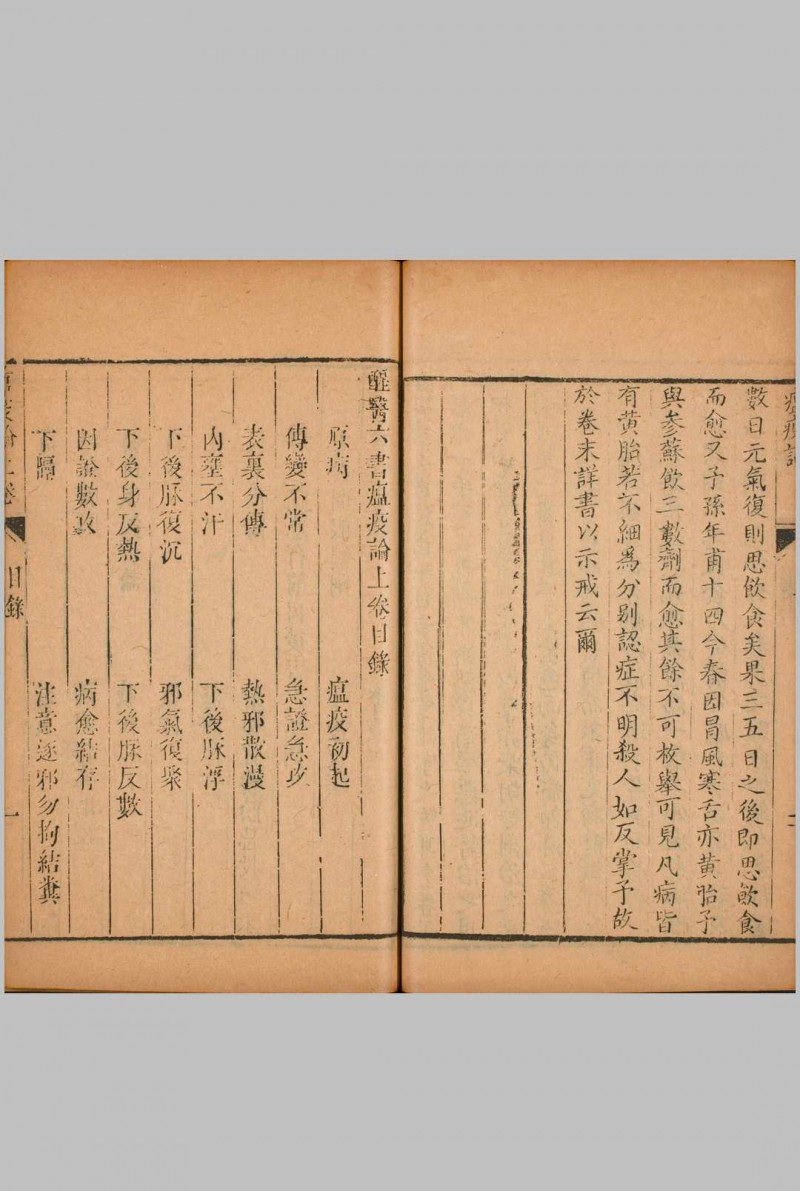 數日元氣復則思飲食矣果三五日之後即思飲食
而愈又子孫年甫十四今春因冒風寒舌亦黃胎予
與参蘇飲三數劑而愈其餘不可枚舉可見凡病皆
有黃胎若不細爲分别認症不明殺人如反掌予故
於卷末詳書以示戒云爾
醒醫六書瘟疫論上卷目錄
原病　瘟疫初起
傳變不常　急證急攻
表裏分傳　熱邪散漫
內壅不汗　下後脉浮
下後脉復沉　邪氣復聚
下後身反熱　下後脉反數
因證數攻　病愈結存
下隔　注意逐邪勿拘結糞
目錄　一